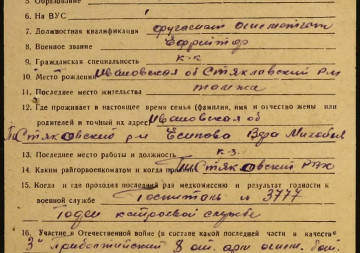 5. Образование
6. На ВУС
7. Должностная квалификация фугасник огнеметчик
8. Военное звание Ефрейтор
9. Гражданская специальность к-к
10. Место рождения Ивановская об Стякловский р-н
11. Последнее место жительства там же
12. Где проживает в настоящее время семья (фамилия, имя и отчество жены или
родителей и точный их адрес) Ивановская об
Стяковский р-н Есипова Вера
13. Последнее место работы и должность к-з.
14. Каким райгорвоенкоматом и когда призван Стяковский РВК
15. Когда и где проходил последний раз медкомиссию и результат годности к
военной службе Госпиталь № 3777
Годен к строевой службе
16. Участие в Отечественной войне (в составе какой последней части и качестве)
3й Прибалтийский 8 от.